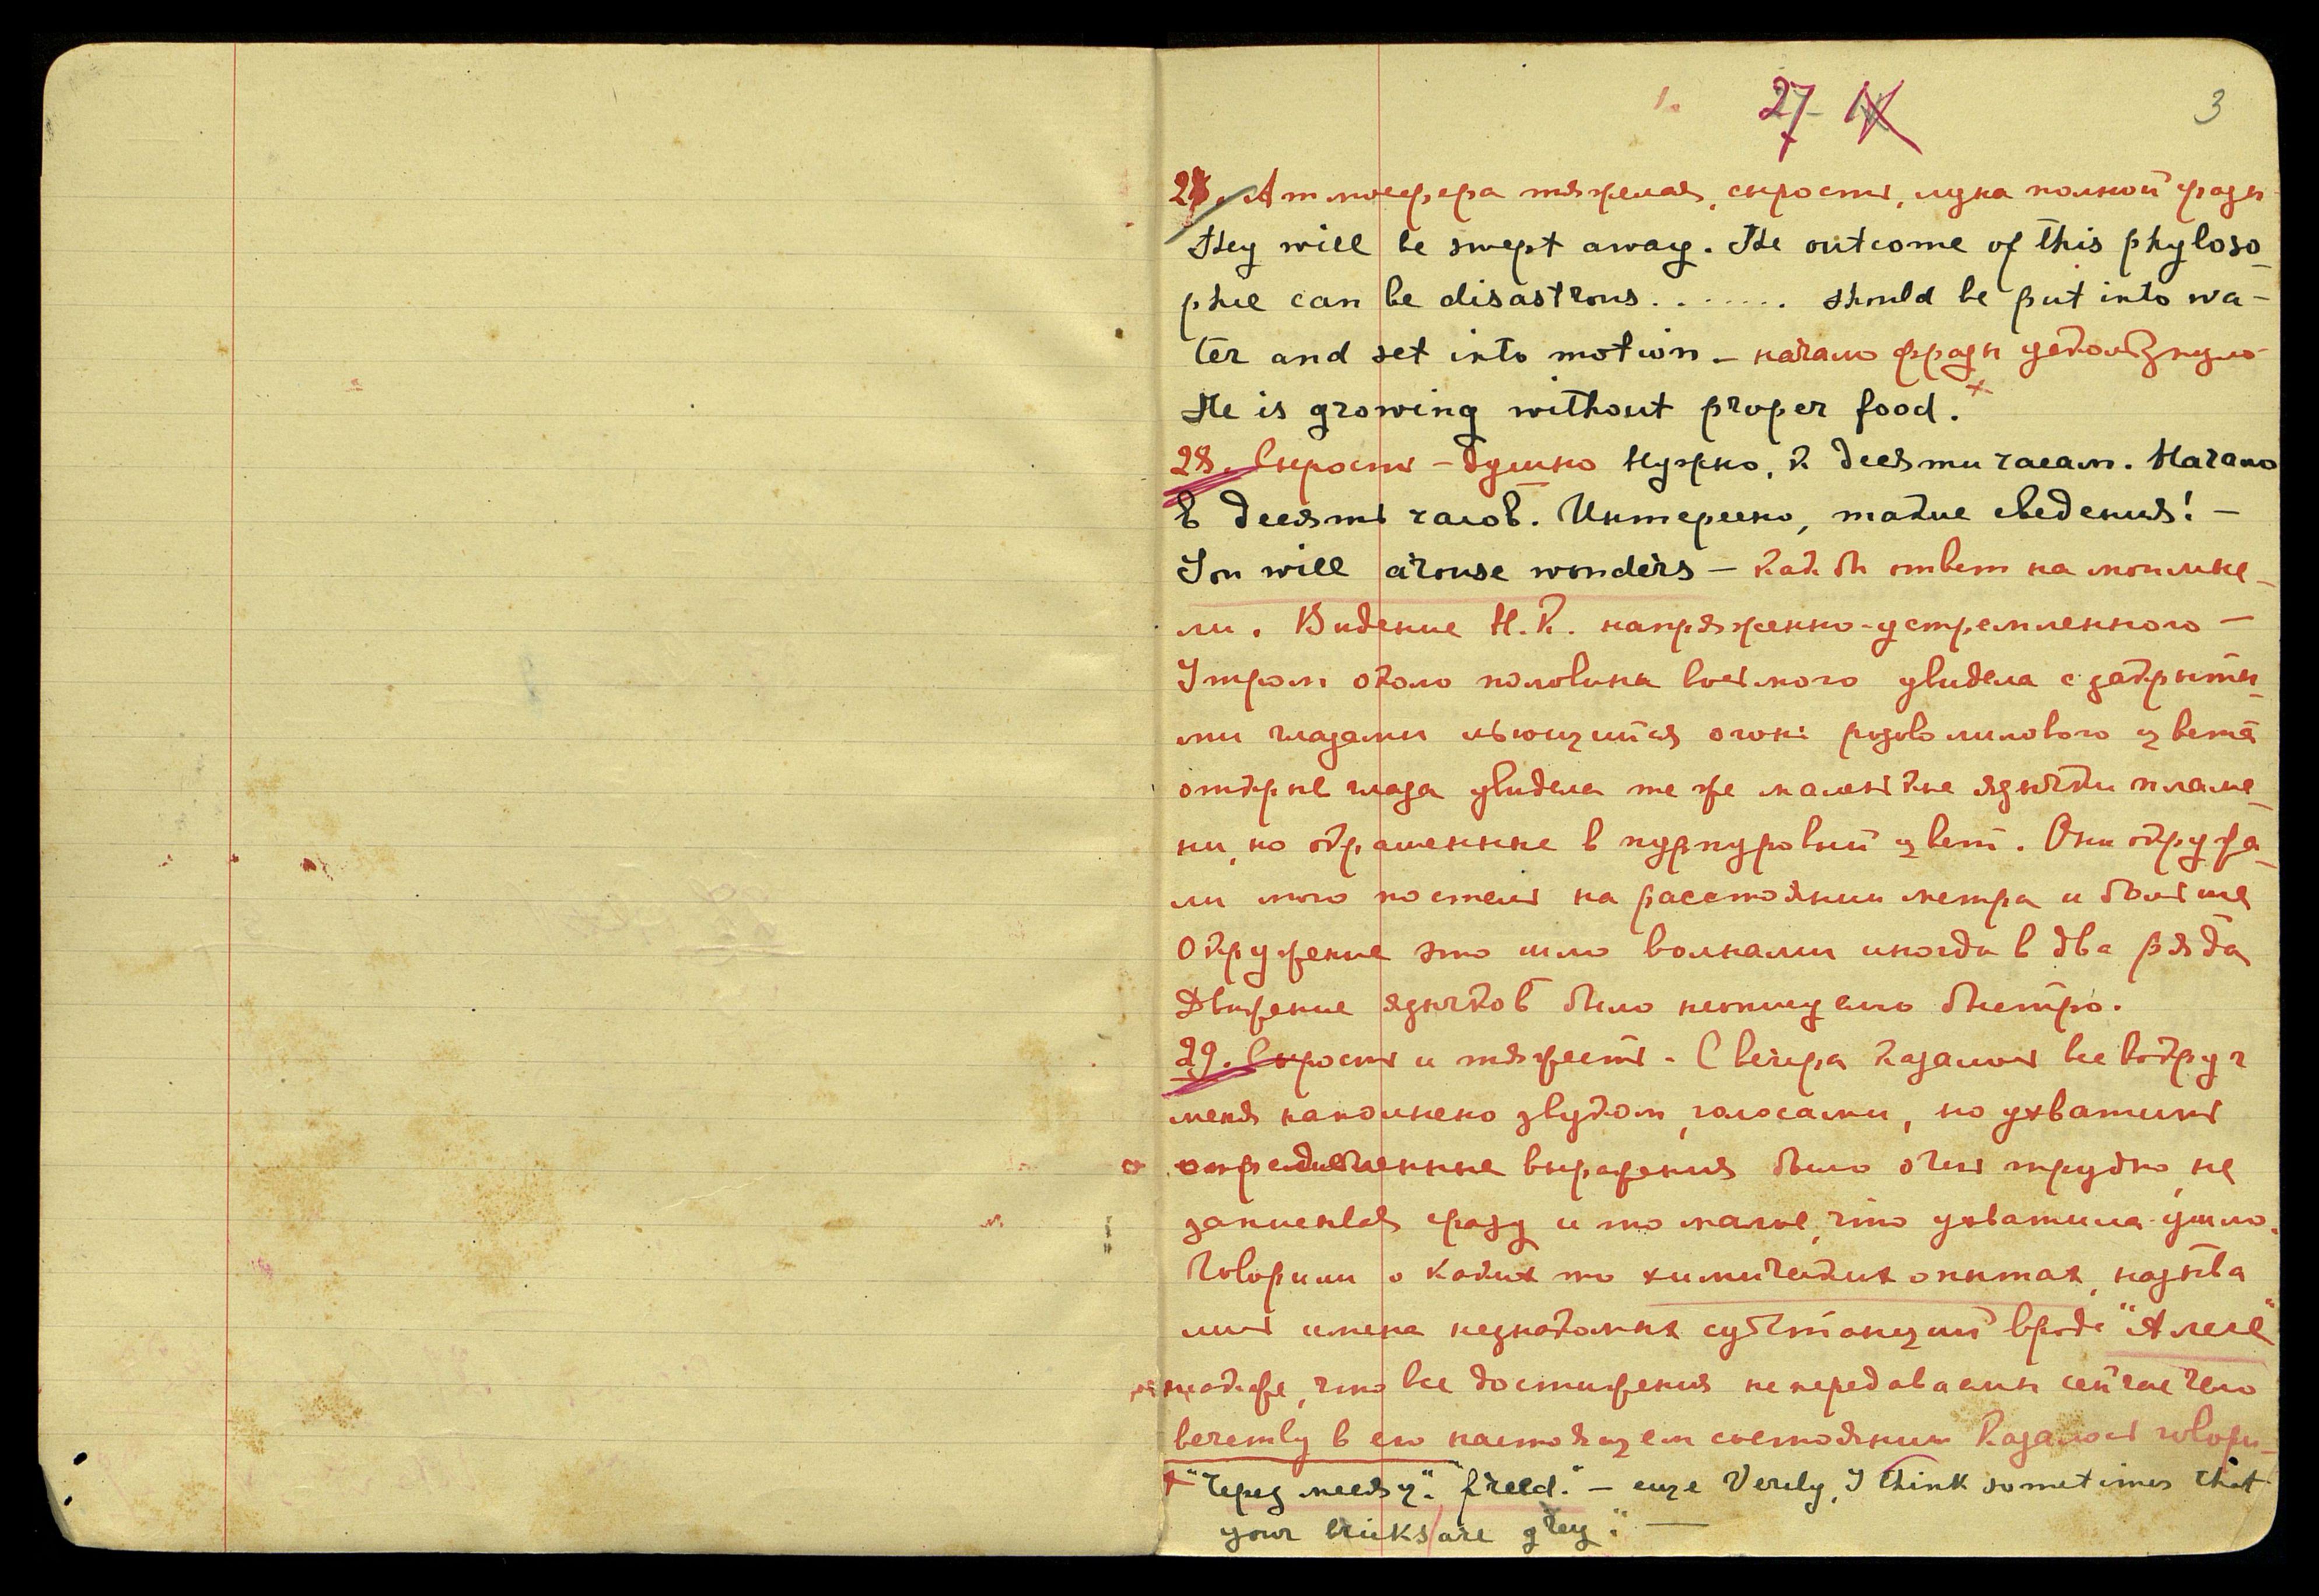 1. 27 - IX
3
27. Атмосфера тяжелая, сырость, мука полной фразы
They will be swept away. The outcome of this phyloso-
phie can be disastrous....... should be put into wa-
ter and set into motion – начало фразы ускользнуло
He is growing without proper food. ×
28. Сырость – душно Нужно, к десяти часам. Начало
в десять часов. Интересно, такие сведения! –
You will arouse wonders – как бы ответ на мои мыс-
ли. Видение Н.К. напряженно-устремленного –
Утром около половины восьмого увидела с закрыты-
ми глазами вьющийся огонь розово лилового цвета
открыв глаза увидела те же маленькие язычки пламе-
ни, но окрашенные в пурпуровый цвет. Они окружа-
ли мою постель на расстоянии метра и больше
Окружение это шло волнами иногда в два ряда
Движение язычков было неописуемо быстро.
29. Сырость и тяжесть. С вечера казалось все вокруг
меня наполнено звуком, голосами, но ухватить
определенные выражения было очень трудно, не
записывая сразу и то малое, что ухватила ушло.
Говорили о каких то химических опытах, называ
лись имена незнакомых субстанций вроде "Алеле"
также, что все достижения не передаваемы сейчас чело
вечеству в его настоящем состоянии Казалось говори-
× "Через месяц". "freed." – еще Verily, I think sometimes that
your bricks are grey." —